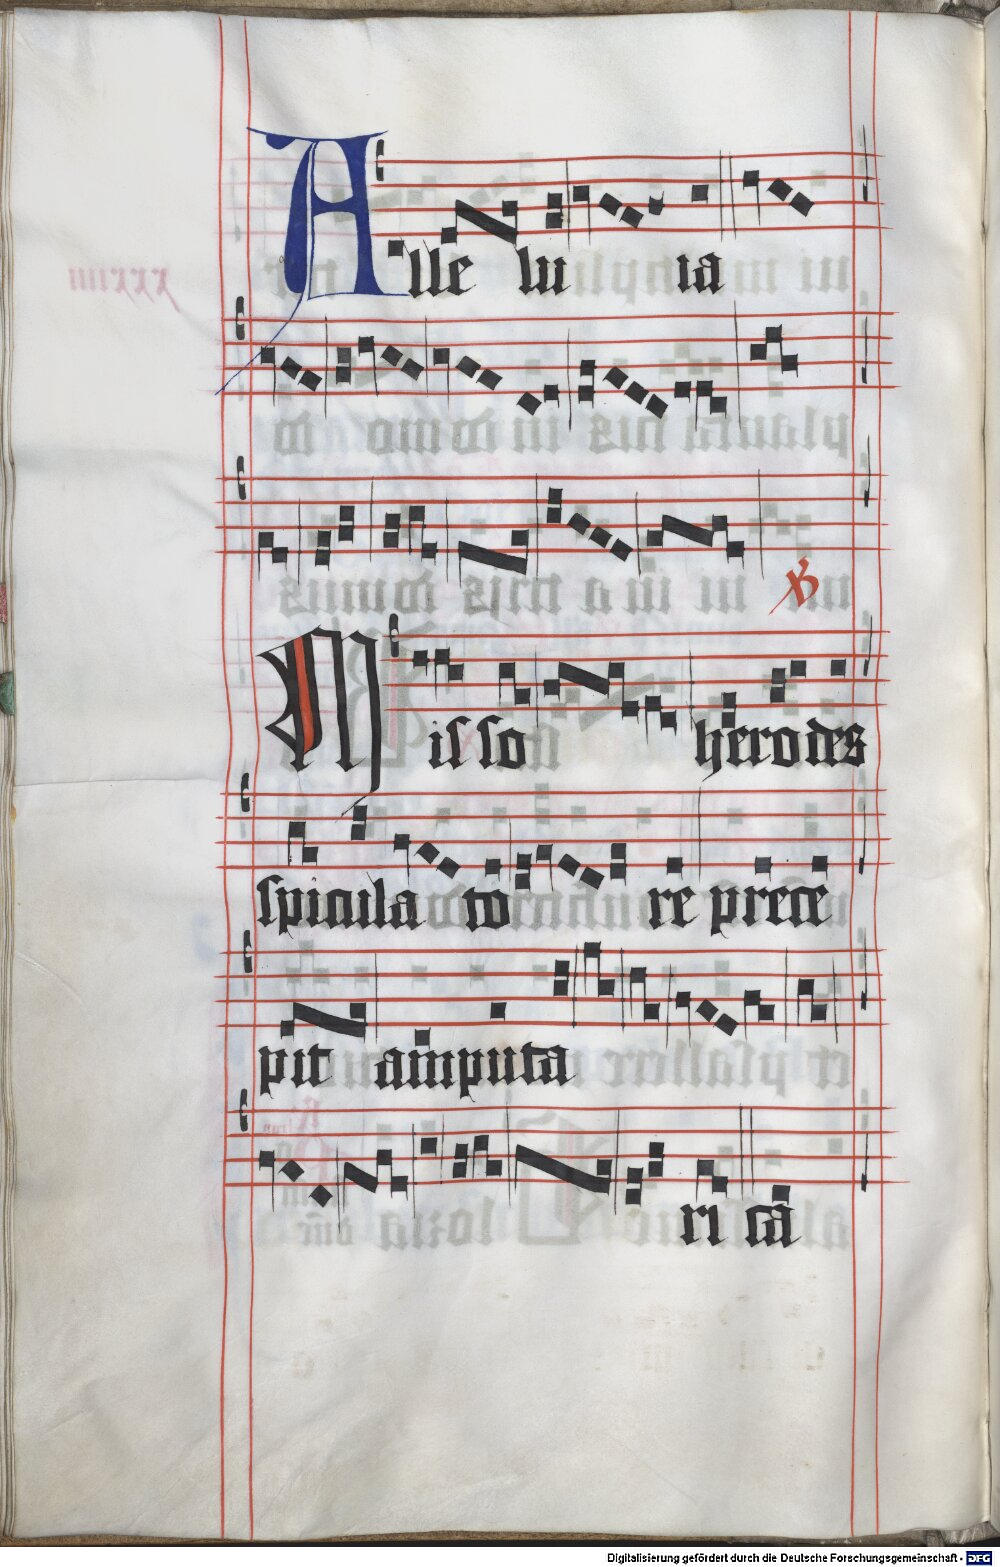 Alle lu ia
℣
Misso herodes
spicula to re prece
pit amputa
ri ca
Digitalisierung gefördert durch die Deutsche Forschungsgemeinschaft - DFG